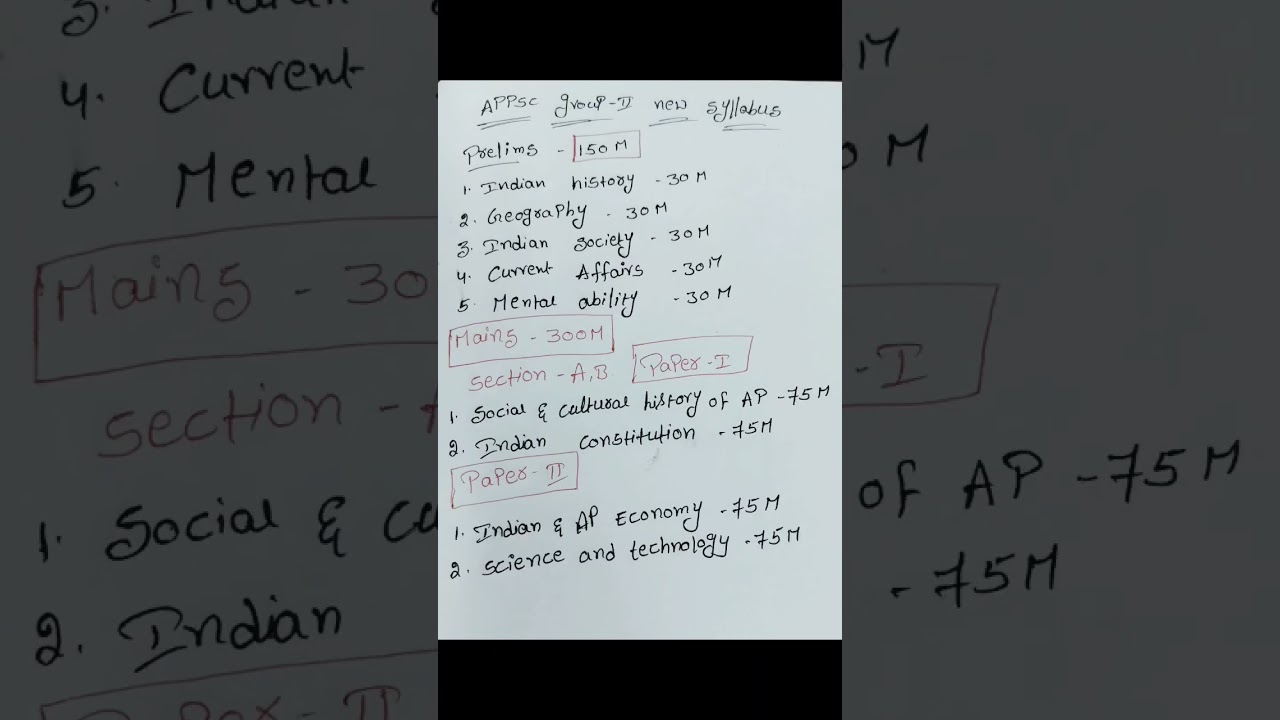 APPSC Group-II new syllabus
Prelims - 150 M
1. Indian history - 30 M
2. Geography - 30 M
3. Indian society - 30 M
4. Current Affairs - 30 M
5. Mental ability - 30 M
Mains - 300M
Section - A, B Paper - I
1. Social & cultural history of AP - 75 M
2. Indian constitution - 75M
Paper - II
1. Indian & AP Economy - 75 M
2. Science and technology - 75 M